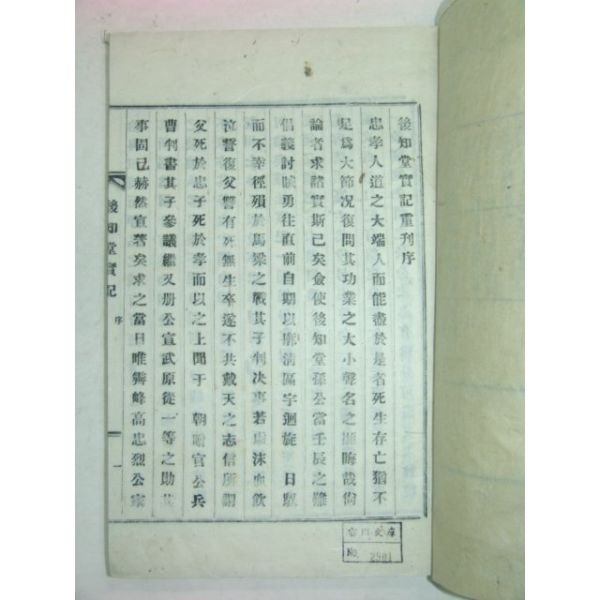 後知堂實記重刊序
忠孝人道之大端人而能盡於是者死生存亡猶不
足爲大節况復問其功業之大小聲名之顯晦哉尙
論者求諸實斯已矣僉使後知堂孫公當壬辰之難
倡義討賊勇往直前自期以廓淸區宇迴旋 日
而不幸徑殞於馬梁之戰其子判决事若 沫血飮
泣誓復父讐有死無生卒遂不共戴天之志信所謂
父死於忠子死於孝而以之上聞于 朝贈官公兵
曹判書其子參議繼又册公宣武原從一等之勛
事固已赫然宣著矣求之當日唯霽峰高忠烈公
後知堂實記
序
一
文庫
No. 2901